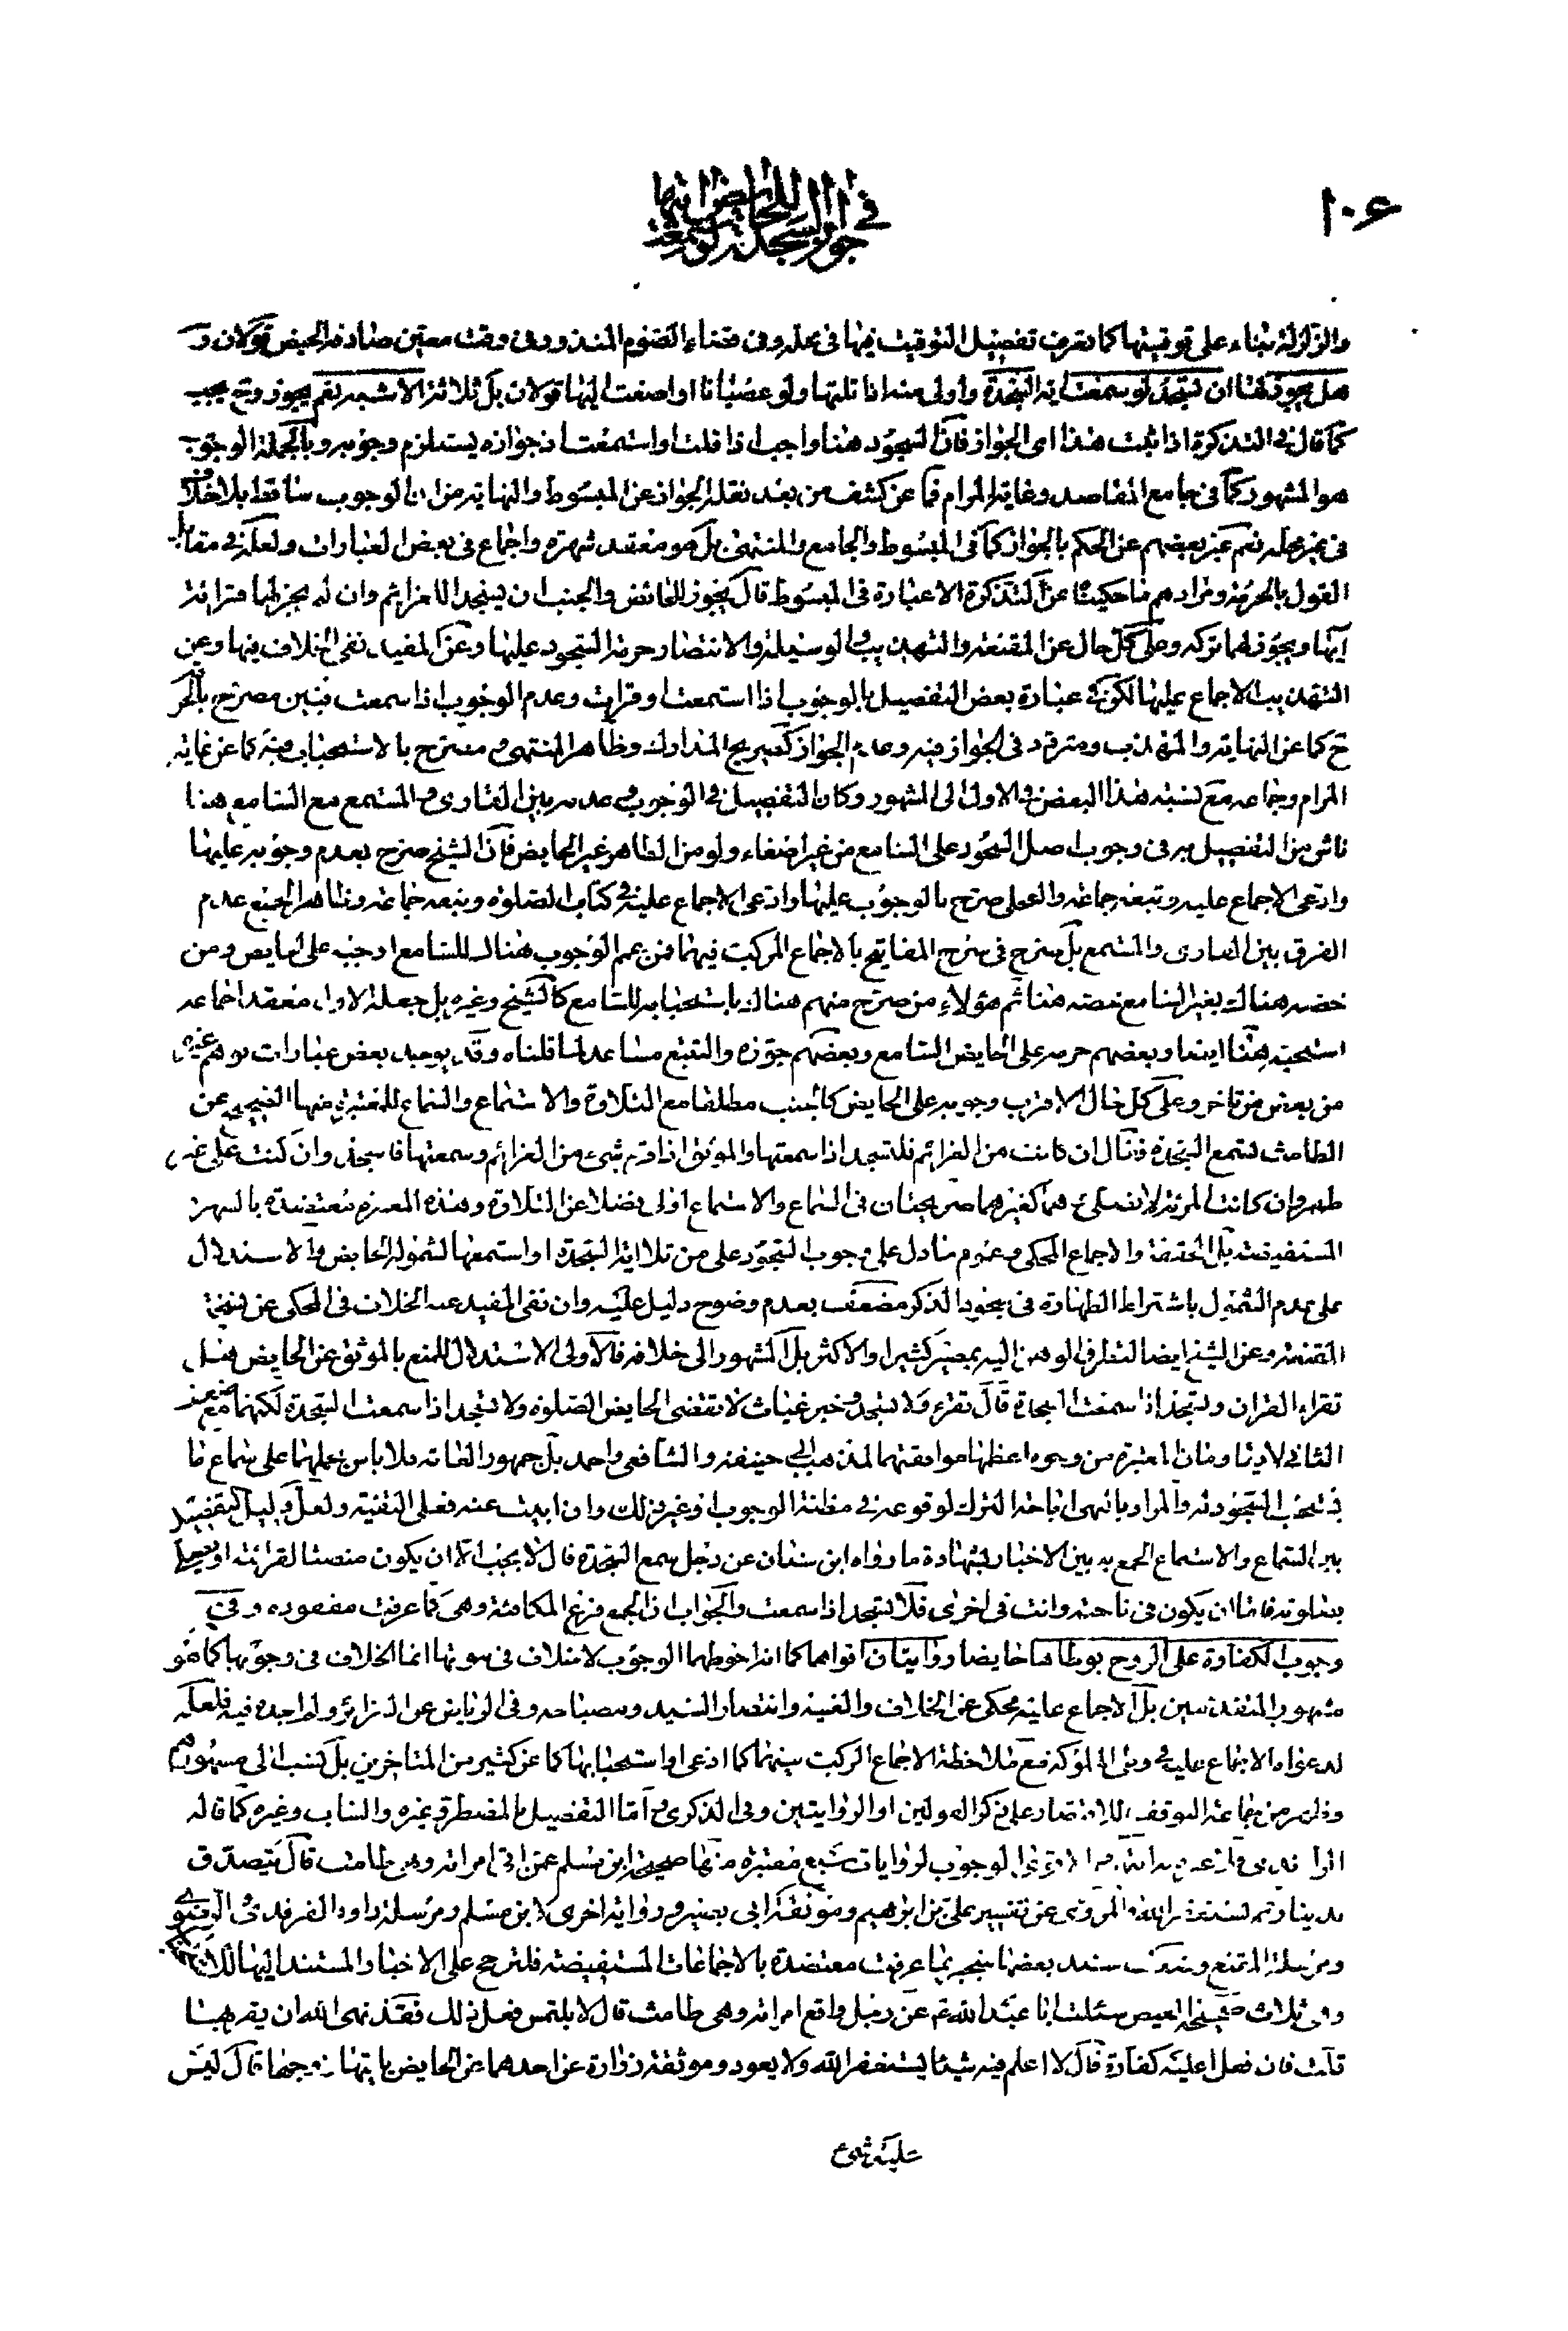 ١٠۶
في جواز السجدة للحائض لو سمعت
والزلزلة بناء على توقيتها كما تعرف تفصيل التوقيت فيها في محله وفي قضاء الصوم المنذور في وقت معين صادفه الحيض قولان و
هل يجوز لها ان تسجد لو سمعت اية السجدة وأولى منه اذا تلتها ولو عصيانا او اصغت اليها قولان بل ثلاثة الاشبه نعم يجوز وح يجب
كما قال في التذكرة اذا ثبت هذا اى الجواز فان السجود هنا واجب اذا تلت او استمعت اذ جوازه يستلزم وجوبه وبالجملة الوجوب
هو المشهور كما في جامع المقاصد وغاية المرام فما عن كشف من بعد نقله الجواز عن المبسوط والنهاية من ان الوجوب ساقط بلا خلاف
في غير محله نعم عبر بعضهم عن الحكم بالجواز كما في المبسوط والجامع والمنتهى بل هو معقد شهرة واجماع في بعض العبارات ولعله في مقابل
القول بالحرمة ومرادهم ما حكينا عن التذكرة الا عبارة في المبسوط قال يجوز للحائض والجنب ان يسجدا للعزائم وان لم يجز لهما قرائة
ايتها ويجوز لهما تركه وعلى كل حال عن المقنعة والتهذيب والوسيلة والانتصار حرمة السجود عليها وعن المفيد نفي الخلاف فيها وعن
التهذيب الاجماع عليها لكون في عبارة بعض التفصيل بالوجوب اذا استمعت او قرات وعدم الوجوب اذا سمعت فبين مصرح بالحرمة
ح كما عن النهاية والمهذب ومتردد في الجواز فيه وعدم الجواز كصريح المدارك وظاهر المنتهى ومصرح بالاستحباب فيه كما عن غاية
المرام وجماعة مع نسبة هذا البعض في الاول الى المشهور وكان التفصيل في الوجوب وعدمه بين القارى والمستمع مع السامع هنا
ناش من التفصيل به في وجوب اصل السجود على السامع من غير اصغاء ولو من الطاهر غير الحايض فان الشيخ صرح بعدم وجوبه عليها
وادعى الاجماع عليه وتبعه جماعة والحلى صرح بالوجوب عليها وادعى الاجماع عليه في كتاب الصلوة وتبعه جماعة وظاهر الجميع عدم
الفرق بين القارى والمستمع بل صرح في شرح المفاتيح بالاجماع المركب فيهما فمن عمم الوجوب هناك للسامع اوجبه على الحايض ومن
خصه هناك بغير السامع خصه هنا ثم هؤلاء من صرح منهم هناك باستحبابه للسامع كالشيخ وغيره بل جعله الاول معقد اجماعه
استحبه هنا ايضا وبعضهم حرمه على الحايض السامع وبعضهم جوزه والتتبع مساعد لما قلناه وقد يوجد بعض عبارات توهم غيره
من بعض من تاخر وعلى كل حال الاقرب وجوبه على الحايض كالجنب مطلقا مع التلاوة والاستماع والسماع للمعتبرة منها الصحيح عن
الطامث تسمع السجدة فقال ان كانت من العزائم فلتسجد اذا سمعتها والموثق اذا قرء شيء من العزائم وسمعتها فاسجد وان كنت على غير
طهر وان كانت المرئة لا تصلى وهما كغيرهما صريحتان في السماع والاستماع اولى فضلا عن التلاوة وهذه المعتبرة معتضدة بالشهرة
المستفيضة بل المحققة والاجماع المحكى وعموم ما دل على وجوب السجود على من تلا اية السجدة او استمعها لشموله الحايض والاستدلال
على عدم الشمول باشتراط الطهارة في سجود الذكر مضعف بعدم وضوح دليل عليه وان نفى المفيد عنه الخلاف في المحكى عن نسخة
المقنعة وعن الشيخ ايضا لتطرق الوهن اليه بمصير كثير او الاكثر بل المشهور الى خلافه فالاولى الاستدلال للمنع بالموثق عن الحايض هل
تقراء القران وتسجد اذا سمعت السجدة قال تقرء ولا تسجد وخبر غياث لا تقضى الحايض الصلوة ولا تسجد اذا سمعت السجدة لكنهما مع ضعف سند
الثاني لا يقاومان المعتبرة من وجوه اعظمها موافقتهما لمذهب ابي حنيفة والشافعى واحمد بل جمهور العامة فلا باس بحملهما على سماع ما
يستحب السجود له والمراد بالنهى اباحة الترك لوقوعه في مظنة الوجوب او غير ذلك وان ابيت عنه فعلى التقية ولعل دليل التفصيل
بين السماع والاستماع الجمع به بين الاخبار بشهادة ما رواه ابن سنان عن رجل سمع السجدة قال لا يجب الا ان يكون منصتا لقرائته او يصلى
بصلوته فاما ان يكون في ناحية وانت في اخرى فلا تسجد اذا سمعت والجواب اذ الجمع فرع المكافئة وهى كما عرفت مفقوده وفي
وجوب الكفارة على الزوج بوطئها حايضا روايتان اقواهما كما انه احوطهما الوجوب لا خلاف في ثبوتها انما الخلاف في وجوبها كما هو
مشهور المتقدمين بل الاجماع عليه محكى عن الخلاف والغنيه وانتصار السيد ومصباحه وفي الرياض عن السرائر ولم اجده فيه فلعله
لدعواه الاجماع عليه في وطى المملوكه مع ملاحظة الاجماع المركب بينهما كما ادعى او استحبابها كما عن كثير من المتاخرين بل نسب الى مشهورهم
وظاهر جماعة التوقف للاقتصار على ذكر القولين او الروايتين وفي الذكرى واما التفصيل بالمضطر وغيره والشاب وغيره كما قاله
الراوندى الوجوب لروايات سبع معتبرة منها صحيحة ابن مسلم عمن اتى امراته وهى طامث قال يتصدق
بدينار ثم يستغفر الله المروى عن تفسير على بن ابرهيم وموثقة ابى بصير ورواية اخرى لابن مسلم ومرسلة داود الفرقد والرضوى
ومرسلة المقنع وضعف سند بعضها منجبر بما عرفت معتضدة بالاجماعات المستفيضة فلترجح على الاخبار المستند اليها للاستحباب
وهى ثلاث صحيحة العيص سئلت ابا عبد الله ع عن رجل واقع امراته وهى طامث قال لا يلتمس فعل ذلك فقد نهى الله ان يقربها
قلت فان فعل اعليه كفارة قال لا اعلم فيه شيئا يستغفر الله ولا يعود وموثقة زرارة عن احدهما عن الحايض ياتيها زوجها قال ليس
عليه شيء